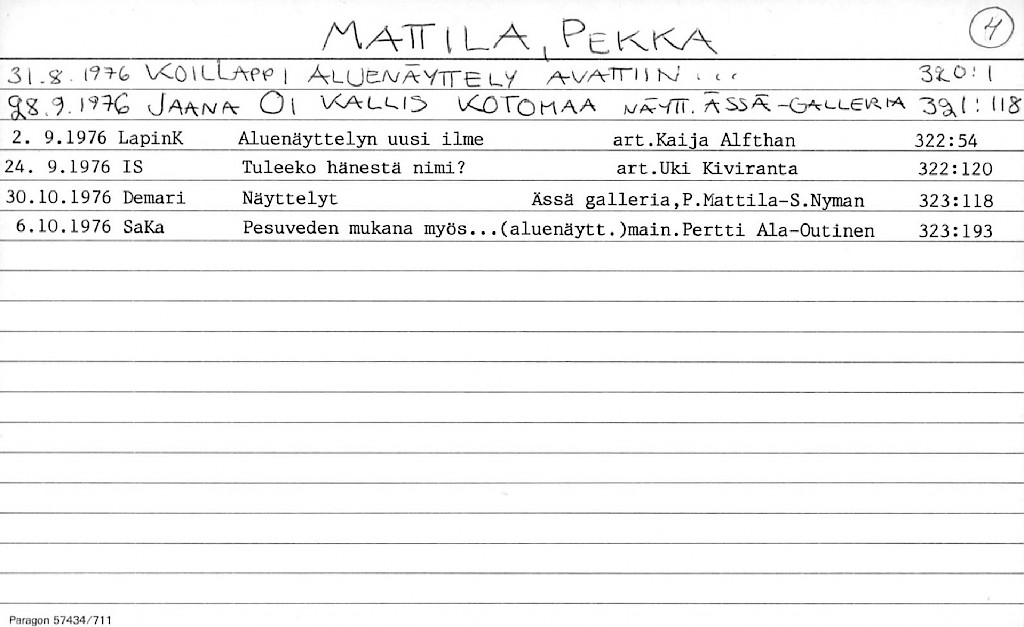 MATTILA, PEKKA 4
31.8.1976 KOILLAPPI ALUENÄYTTELY AVATTIIN... 320:1
28.9.1976 JAANA OI KALLIS KOTOMAA NÄYTT. ÄSSÄ-GALLERIA 321:118
2. 9.1976 LapinK Aluenäyttelyn uusi ilme art.Kaija Alfthan 322:54
24. 9.1976 IS Tuleeko hänestä nimi? art.Uki Kiviranta 322:120
30.10.1976 Demari Näyttelyt Ässä galleria,P.Mattila-S.Nyman 323:118
6.10.1976 SaKa Pesuveden mukana myös...(aluenäytt.)main.Pertti Ala-Outinen 323:193
Paragon 57434/711